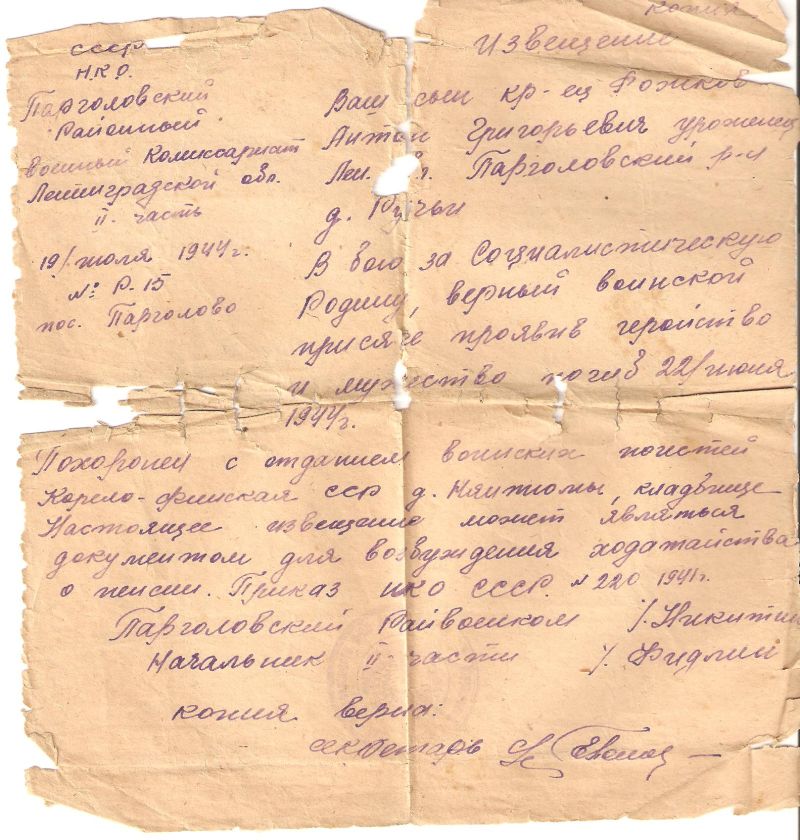 копия
Извещение
СССР
Н.К.О.
Парголовский
Районный
военный Комиссариат
Ленинградской обл.
II-часть
19/июля 1944г.
№ Р-15
пос. Парголово
Ваш сын кр-ец Рожков
Антон Григорьевич уроженец
Лен. Парголовский р-н
д. Ручьи
В бою за Социалистическую
Родину, верный воинской
присяге проявив геройство
и мужество погиб 22/июня
1944г.
Похоронен с отданием воинских почестей
Корело-финская ССР д. кладбище
Настоящее извещение может являться
документом для возбуждения ходатайства
о пенсии. Приказ нко СССР. N 220 1941г.
Парголовский Райвоенком /. Никитин
Начальник II-части /. Фидлин
копия верна:
секретарь